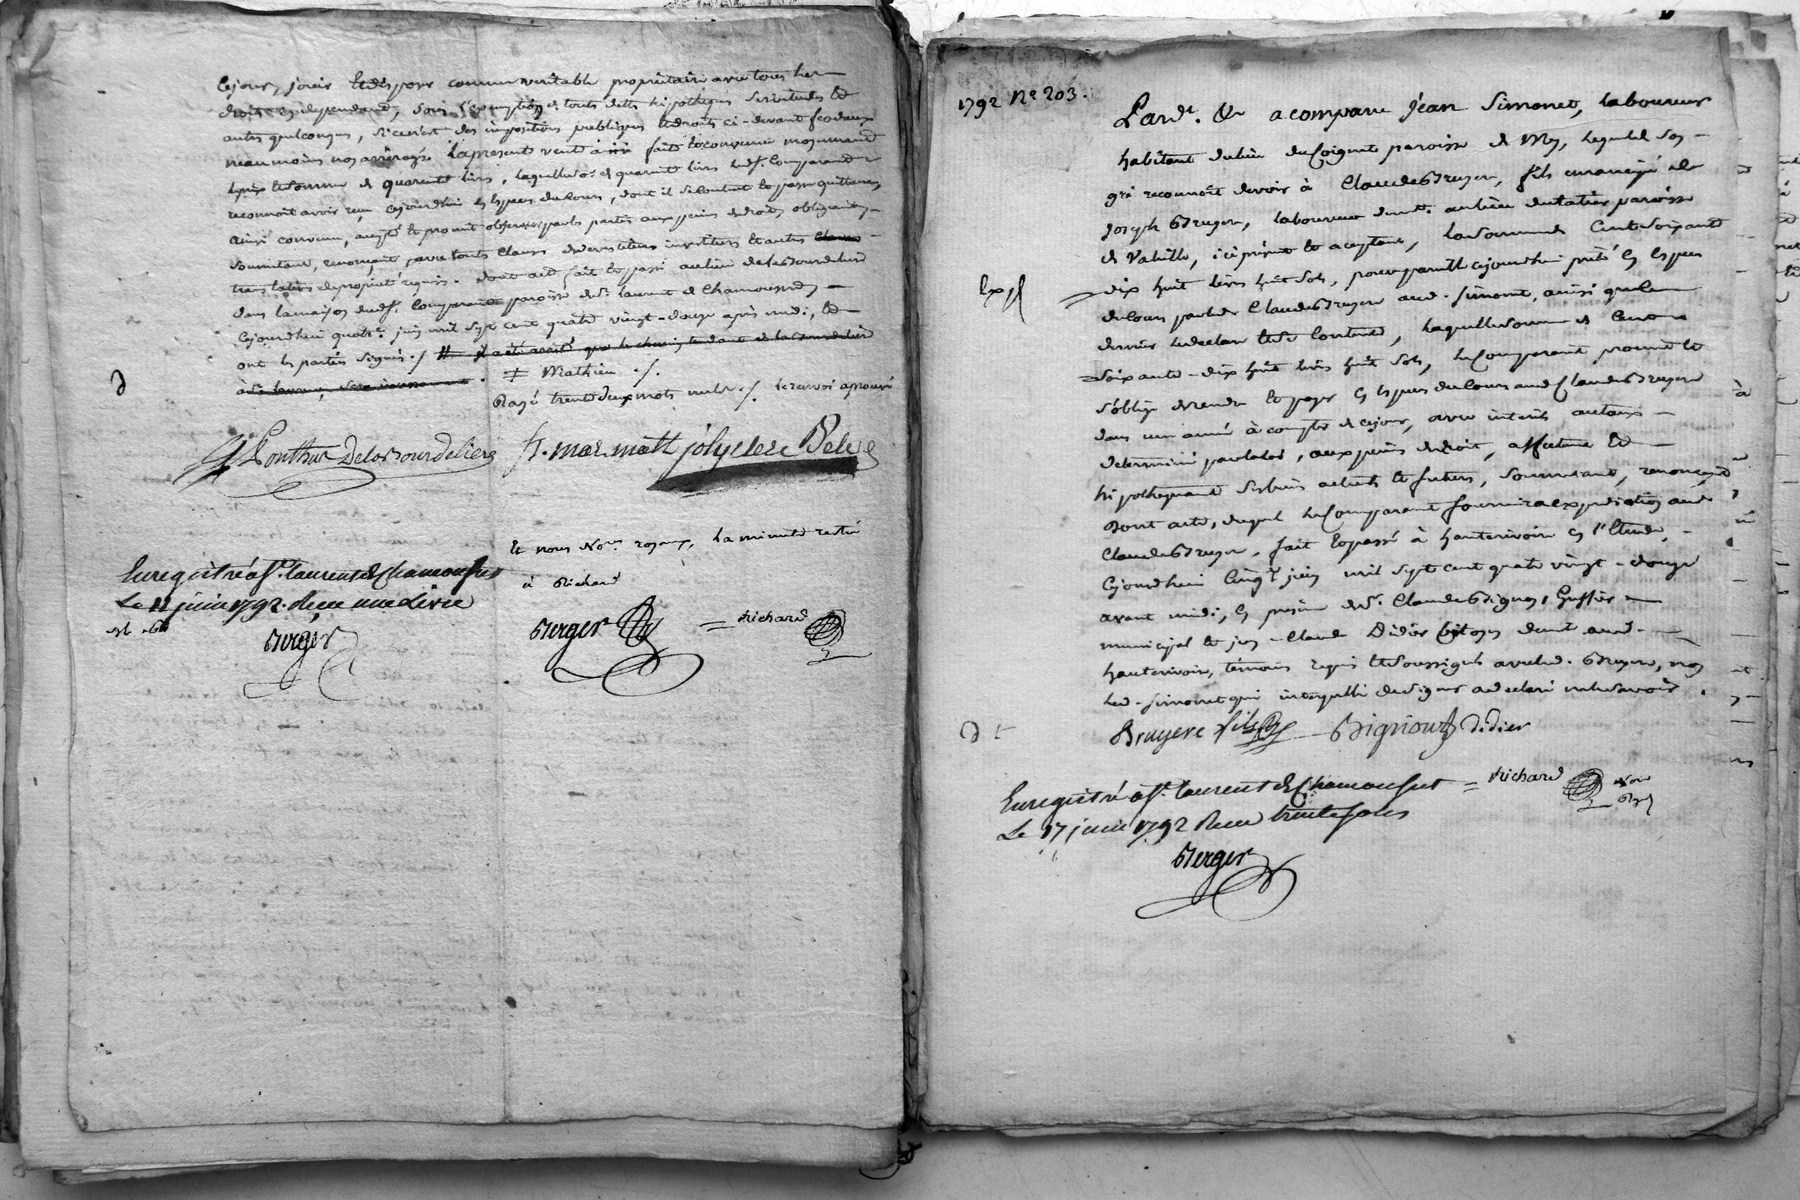 Cejour, jouir et disposer comme veritable proprietaire avec tous ses
droits en dependand, sous l'exemption de touts dettes hipotheques servitudes et
autres quelconques, si ce n'est des impositions publiques et droits ci-devant feodaux
neanmoins non arrerages la present vente a été faite et convenue moyennant
le prix et somme de quarente livres, laquelle so. de quarente livres led. sr. comparand
reconnoit avoir reçu cejourdhui en especes du cours, dont il se contente et passe quittance,
ainsi convenu, accepté et promit observer par les parties aux peines de droit, obligeant,
soumettant, renonçant, avec toutes clauses de devestiture investiture et autres
translatives de propriété requises. dont acte fait et passé au lieu de la Bourdeliere
dans la maison dud. sr. comparand paroisse de St. laurent de Chamousset,
Cejourdhui quatre juin mil sept cent quatre vingt-douze après midi, et
ont les parties signés ./.
Mathieu ./.
Rayé trente deux mots nuls ./. le renvoi aprouvé
Ponthus Delabourdeliere
et nous Nores. royaux, la minute restée
à Richard
Enregistré a St. laurent de Chamousset
Le 12 juin 1792. Reçu une Livre
Berger
Berger = Richard
1792 N° 203.
Pardt. &c a comparu Jean Simonet, laboureur
habitant du lieu du Coignet paroisse de Mey, lequel de son
gré reconnoit devoir à Claude Bruyere, fils emancipé de
joseph Bruyere, laboureur demt. au lieu du tatier paroisse
de Vahille, ici présent et aceptant, la somme de Cent soixante
dix huit livres huit sols, pour pareille cejourdhui prêté en especes
du cours par led. Claude Bruyere aud. Simonet, ainsi que le
dernier le declare et se contente, laquelle somme de cent
soixante-dix huit livres huit sols, le Comparant promet et
s'oblige de rendre et payer en especes du cours aud. Claude Bruyere
dans un année à compter de cejour, avec interets au taux
determiné par la loi, aux peines de droit, affecte et
hipothequant ses biens actuels et futurs, soumettant, renonçant
Dont acte, duquel le Comparant fournira expedition aud.
Claude Bruyere, fait et passé à hauterivoire en l'Etude,
Cejourdhui Cinqe. juin mil sept cent quatre vingt-douze
avant midi, en presence de Sr. Claude Bignou, Greffier
municipal et jen-Claude Didier citoyen demt. aud.
hauterivoire, témoins requis et soussignés avec led. Bruyere, non
led. Simonet qui interpellé de signer a declaré ne le savoir.
Bruyere fils Bignoux Didier
Enregistré a St. laurent de Chamousset = Richard
Le 17 juin 1792 Reçu trente sols
Berger